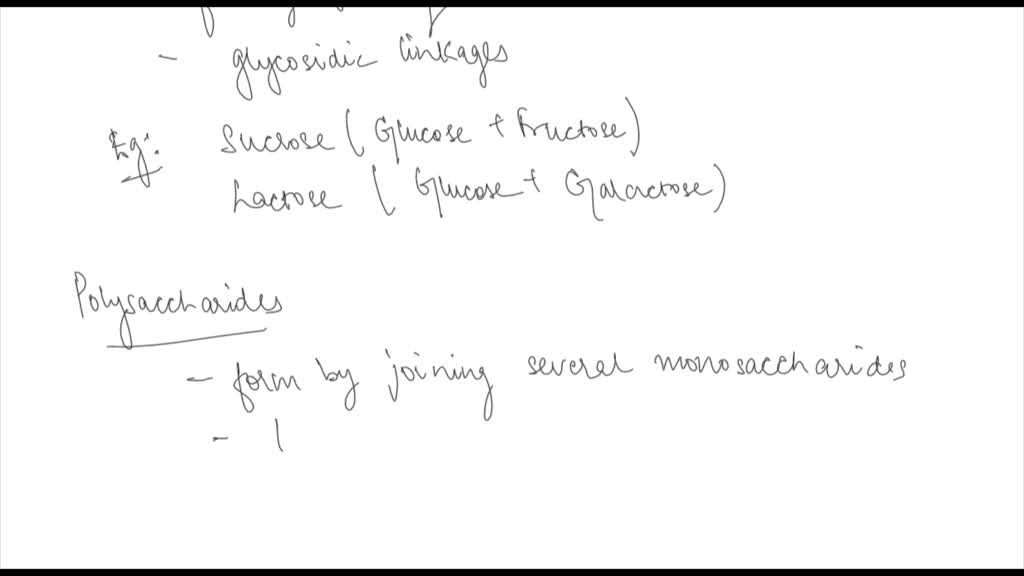 - glycosidic linkages
Eg: Sucrose (Glucose + Fructose)
Lactose (Glucose + Galactose)
Polysaccharides
- form by joining several monosaccharides
-